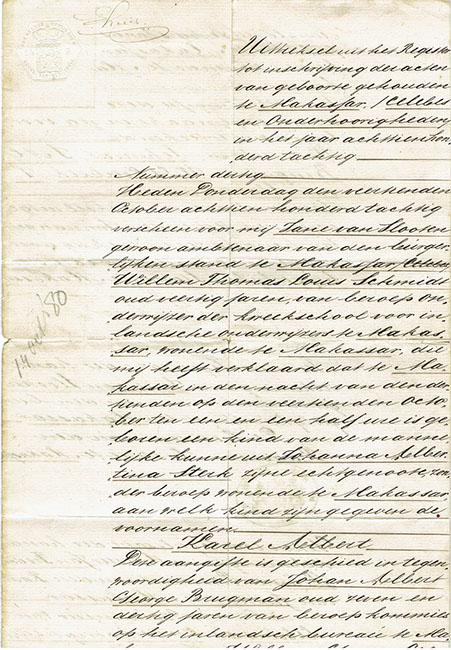 Uittreksel uit het Register
tot inschrijving der acten
van geboorte gehouden
te Makassar, (Celebes
en Onderhoorigheden)
in het jaar achttien hon-
derd tachtig
Nummer dertig
Heden Donderdag den veertienden
October achttien honderd tachtig
verscheen voor mij Jane van Slooten
gewoon ambtenaar van den burger-
lijken stand te Makassar, Celebes,
Willem Thomas Louis Schmidt
oud veertig jaren, van beroep on-
derwijzer der kweekschool voor in-
landsche onderwijzers te Makas-
sar, wonende te Makassar, die
mij heeft verklaard dat te Ma-
kassar in den nacht van den der-
tienden op den veertienden Octo-
ber ten een en een half ure is ge-
boren een kind van de manne-
lijke kunne uit Johanna Alber-
tina Sterk zijne echtgenoote, zon-
der beroep wonende te Makassar,
aan welk kind zijn gegeven de
voornamen
Karel Albert
Deze aangifte is geschied in tegen-
woordigheid van Johan Albert
George Brugman oud zeven en
dertig jaren van beroep kommies
op het inlandsch bureau te Ma-
14 oct. '80